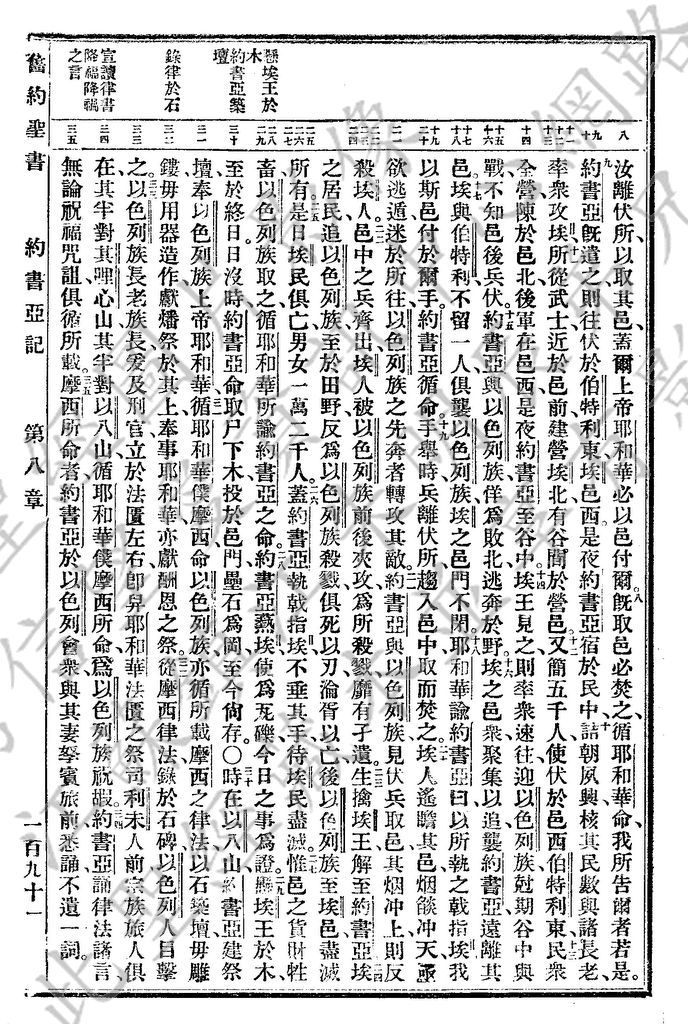 汝離伏所以取其邑、蓋爾上帝耶和華必以邑付爾。既取邑必焚之、循耶和華命、我所告爾者若是。
約書亞既遣之、則往伏於伯特利東、埃邑西、是夜約書亞宿於民中、詰朝夙興、核其民數、與諸長老、
率衆攻埃、所從武士近於邑前、建營埃北、有谷間於營邑。又簡五千人、使伏於邑西、伯特利東、民衆
全營陳於邑北、後軍在邑西、是夜約書亞至谷中。埃王見之、則率衆速往、迎以色列族、尅期谷中與
戰、不知邑後兵伏。約書亞與以色列族佯爲敗北、逃奔於野。埃之邑衆聚集以追、襲約書亞、遠離其
邑。埃與伯特利不留一人、俱襲以色列族、埃之邑門不閉。耶和華諭約書亞曰、以所執之戟指埃、我
以斯邑付於爾手、約書亞循命。手舉時、兵離伏所、趨入邑中、取而焚之。埃人遙瞻其邑、烟燄冲天、亟
欲逃遁、迷於所往、以色列族之先奔者、轉攻其敵。約書亞與以色列族見伏兵取邑、其烟冲上、則反
殺埃人。邑中之兵齊出、埃人被以色列族前後夾攻、爲所殺戮、靡有孑遺。生擒埃王、解至約書亞。埃
之居民、追以色列族至於田野、反爲以色列族殺戮、俱死以刃、淪胥以亡、後以色列族至埃、盡滅
所有。是日埃民俱亡、男女一萬二千人。蓋約書亞執戟指埃、不垂其手、待埃民盡滅。惟邑之貨財牲
畜、以色列族取之、循耶和華所諭約書亞之命。約書亞燕埃、使爲瓦礫、今日之事爲證。懸埃王於木、
至於終日、日沒時、約書亞命取尸下木、投於邑門、壘石爲岡、至今尙存。○時在以八山、約書亞建祭
壇、奉以色列族上帝耶和華。循耶和華僕摩西命以色列族、亦循所載摩西之律法、以石築壇、毋雕
鏤、毋用器造作、獻燔祭於其上、奉事耶和華、亦獻酬恩之祭。從摩西律法、錄於石碑、以色列人目擊
之。以色列族長老、族長、爰及刑官、立於法匱左右、卽舁耶和華法匱之祭司利未人前、宗族旅人俱
在、其半對其哩心山、其半對以八山、循耶和華僕摩西所命、爲以色列族祝嘏。約書亞誦律法諸言、
無論祝福咒詛、俱循所載。摩西所命者、約書亞於以色列會衆、與其妻孥賓旅前、悉誦不遺一詞。
懸埃王於
木
約書亞築
壇
錄律於石
宣讀律書
降福降禍
之言
八
九
十
十一
十二
十三
十四
十五
十六
十七
十八
十九
二十
二一
二二
二三
二四
二五
二六
二七
二八
二九
三十
三一
三二
三三
三四
三五
舊約聖書 約書亞記 第八章 一百九十一